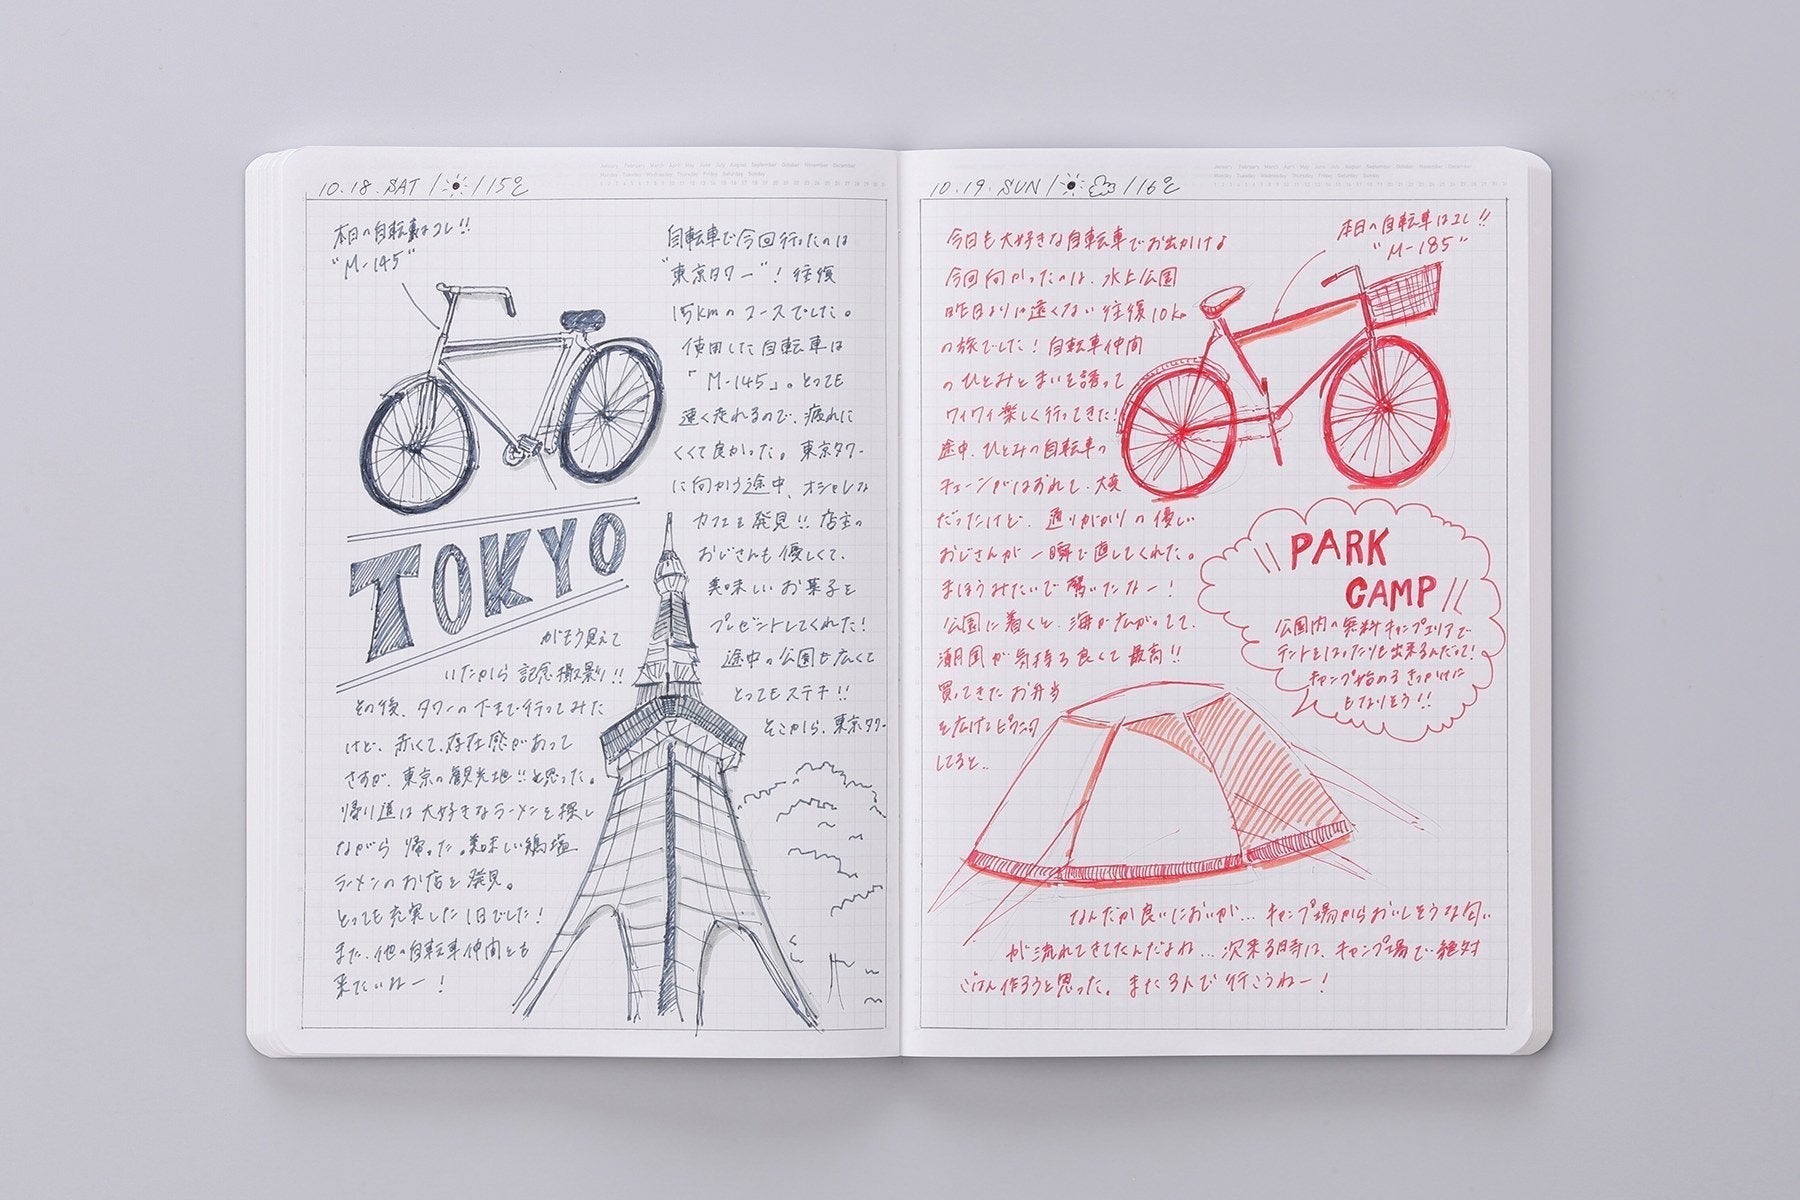 January February March April May June July August September October November December
Monday Tuesday Wednesday Thursday Friday Saturday Sunday
10.18.SAT / / 15℃
本日の自転車はコレ!!
"M-145"
自転車で今回行ったのは
"東京タワー"! 往復
15kmのコースでした。
使用した自転車は
「M-145」。とっても
速く走れるので、疲れに
くくて良かった。東京タワー
に向かう途中、オシャレな
カフェを発見!! 店主の
おじさんも優しくて、
美味しいお菓子を
プレゼントしてくれた!
途中の公園も広くて
とってもステキ!!
そこから、東京タワー
TOKYO
がもう見えて
いたから記念撮影!!
その後、タワーの下まで行ってみた
けど、赤くて、存在感があって
さすが、東京の観光地!!と思った。
帰り道は大好きなラーメンを探し
ながら 帰った。美味しい鶏塩
ラーメンのお店を発見。
とっても充実した1日でした!
また、他の自転車仲間とも
来たいねー!
January February March April May June July August September October November December
Monday Tuesday Wednesday Thursday Friday Saturday Sunday
10.19.SUN / / 16℃
今日も大好きな自転車でお出かけ♪
今回向かったのは、水上公園
昨日よりは遠くない往復10km
の旅でした! 自転車仲間
のひとみとまいを誘って
ワイワイ楽しく行ってきた!
途中、ひとみの自転車の
チェーンがはずれて、大変
だったけど、通りがかりの優しい
おじさんが一瞬で直してくれた。
まほうみたいで驚いたなー!
公園に着くと、海が広がってて、
潮風が気持ち良くて最高!!
買ってきたお弁当
を広げてピクニック
してると..
本日の自転車はコレ!!
"M-185"
PARK
CAMP
公園内の無料キャンプエリアで
テントをはったりも出来るんだって!
キャンプ始めるきっかけに
もなりそう!!
なんだか良いにおいが... キャンプ場からおいしそうな匂い
が流れてきてたんだよね... 次来る時は、キャンプ場で絶対
ごはん作ろうと思った。また3人で行こうねー!